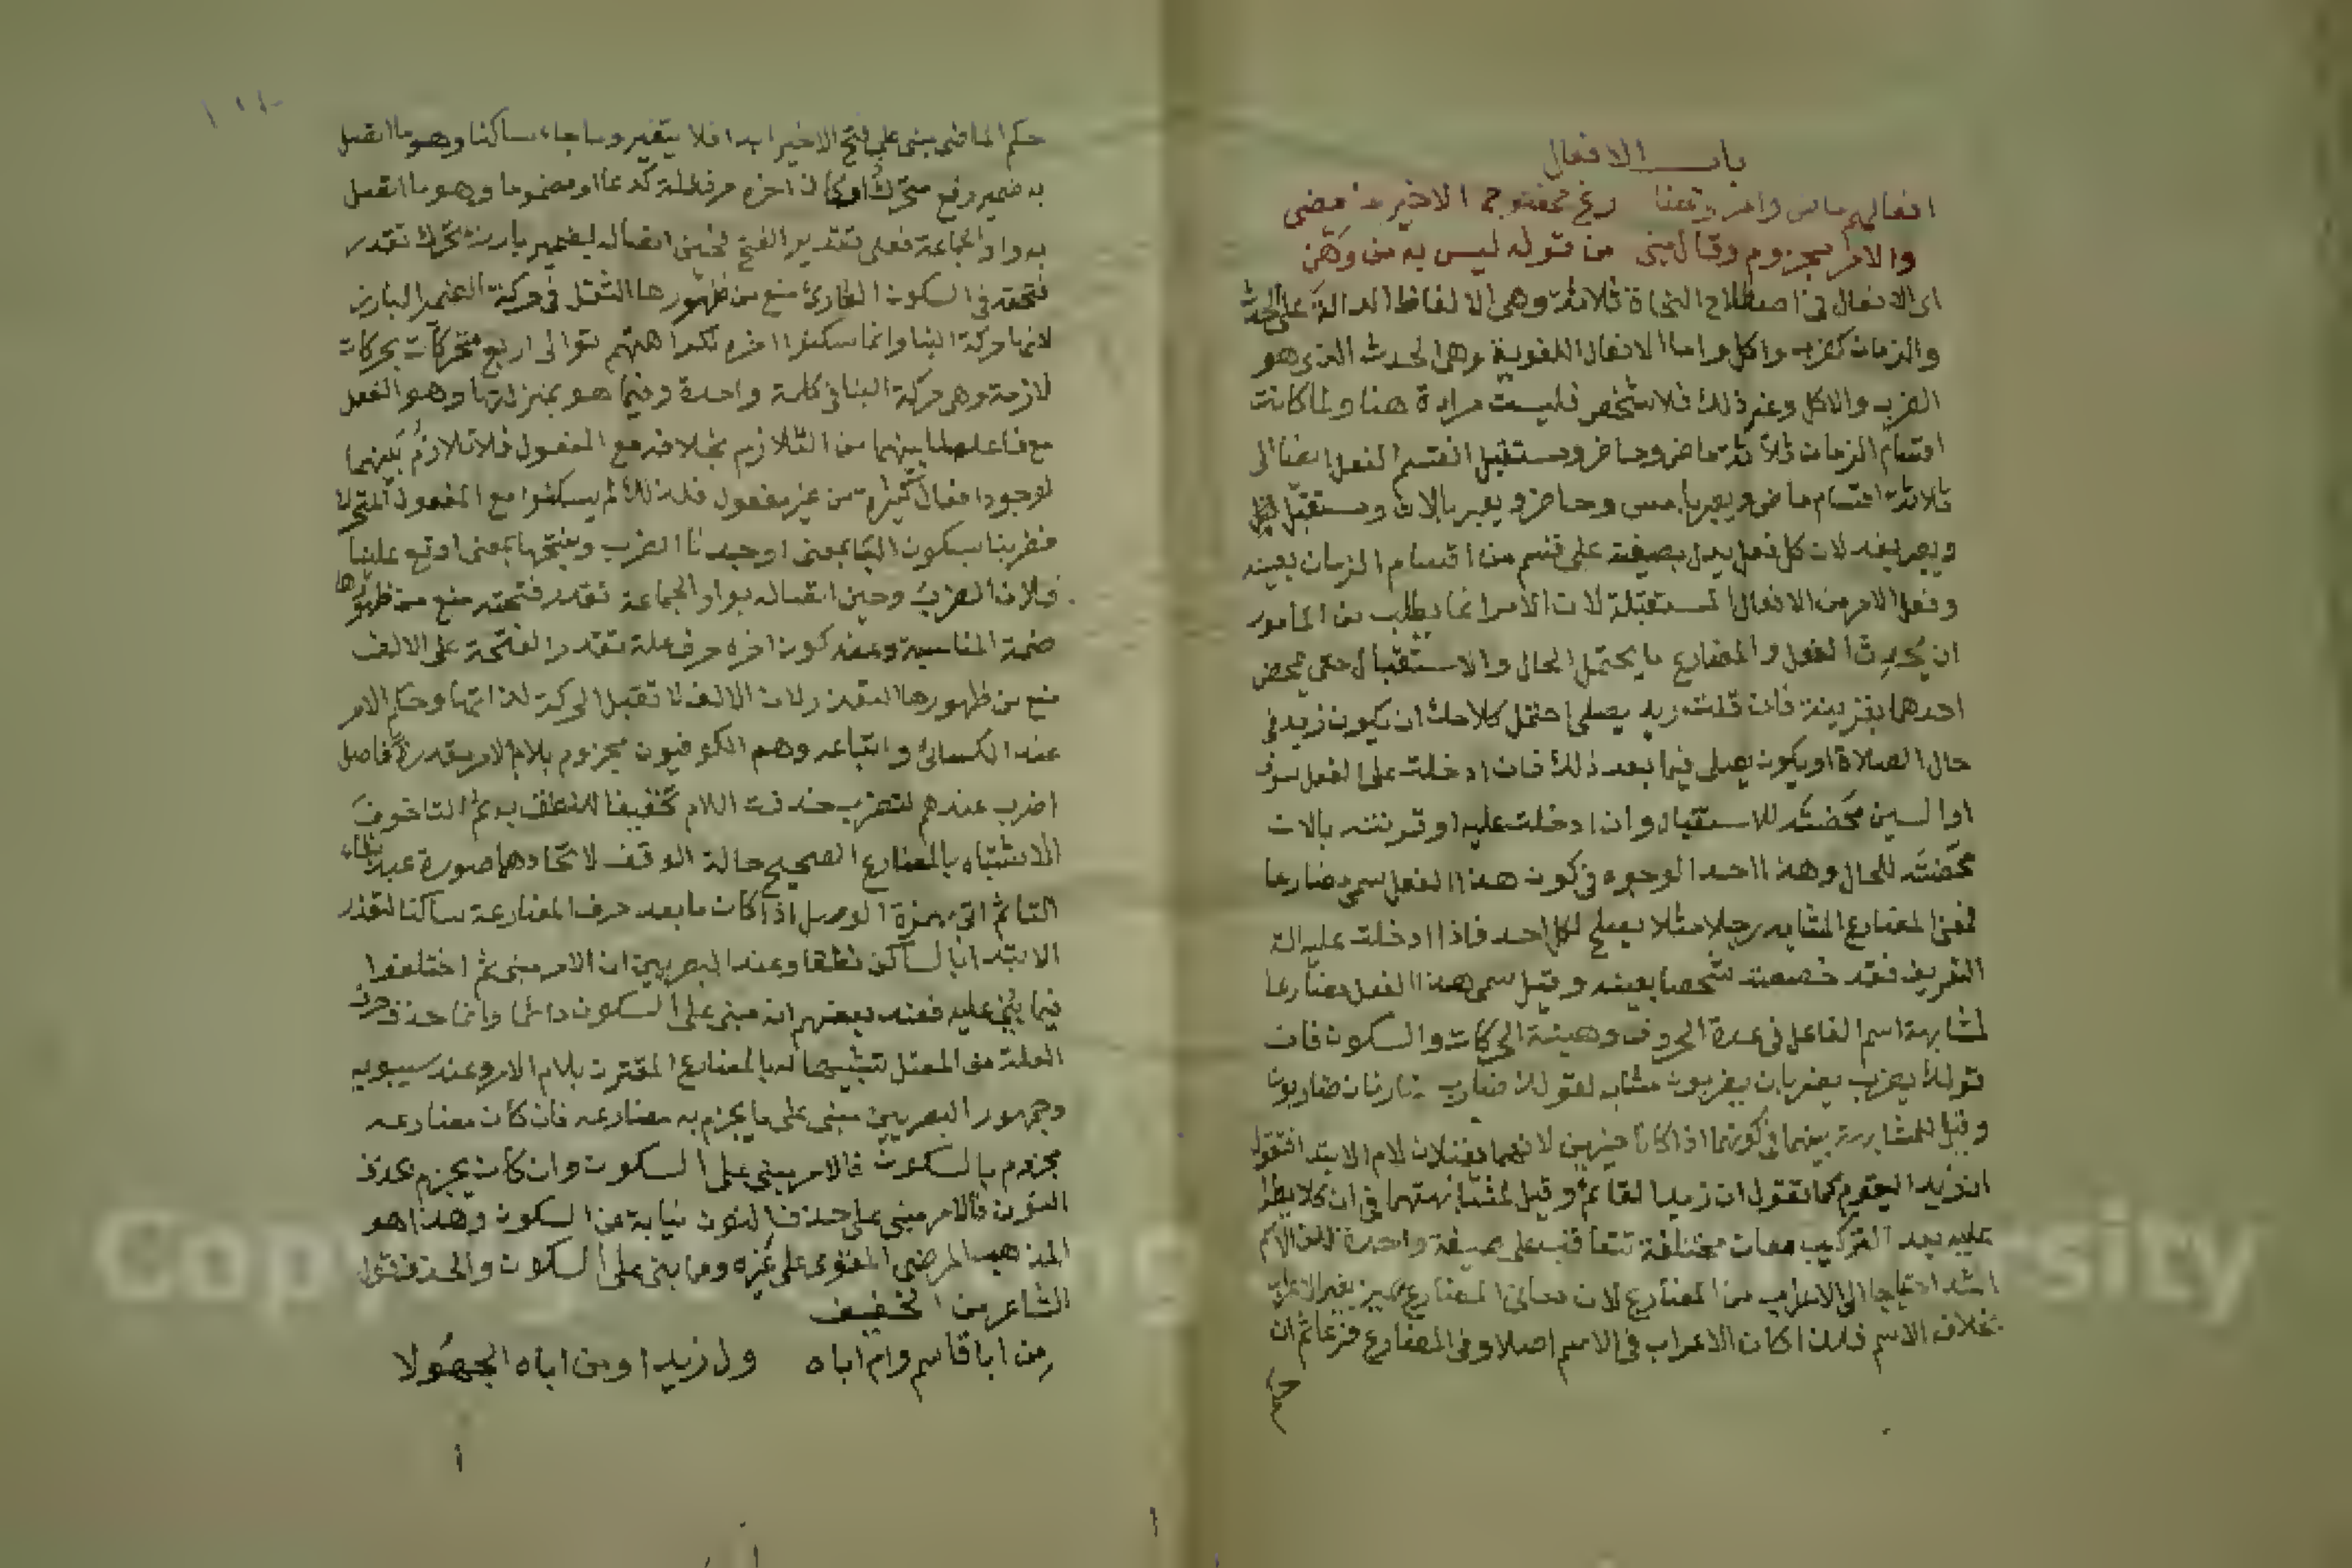 باب الافعال
افعالهم ماض وامر وتفنا رغ مفتوح الاخير من مضى
والامر مجزوم وقال مبنى من قوله ليس به من وهن
اى الافعال فى اصطلاح النحاة ثلاثة وهى الالفاظ الدالة على الحدث
والزمان كضرب واكل واما الافعال اللغوية وهى الحدث الذى هو
الضرب والاكل وغير ذلك فلا شخص فليست مرادة هنا ولما كانت
اقسام الزمان ثلاثة ماض وحاضر ومستقبل انقسم الفعل ايضا الى
ثلاثة اقسام ماض ويعبر بامس وحاضر ويعبر بالان ومستقبل
ويعبر بغد لان كل فعل يدل بصيغته على قسم من اقسام الزمان بعينه
وفعل الامر من الافعال المستقبلة لان الامر انما يطلب من المامور
ان يُحدِث الفعل والمضارع ما يحتمل الحال والاستقبال حتى يمحض
احدهما بقرينة فان قلت زيد يصلى احتمل كلامك ان يكون زيد فى
حال الصلاة او يكون يصلى فيما بعد ذلك فان ادخلت على الفعل سوف
او السين محَّضتَه للاستقبال وان ادخلت عليه او قرنته بالان
محَّضتَه للحال وهذا احد الوجوه فى كون هذا الفعل سمى مضارعا
فمعنى المضارع المشابه رجلا مثلا يصلح لكل احد فاذا ادخلت عليه الة
التعريف فقد خصصته شخصا بعينه وقيل سمى هذا الفعل مضارعا
لمشابهة اسم الفاعل فى عدة الحروف وهيئة الحركات والسكون فان
قولك يضرب يضربان يضربون مشابه لقولك ضارب ضاربان ضاربون
وقيل للمشابهة بينهما فى كونهما اذا كانا خبرين لانهما يقبلان لام الابتدا فتقول
ان زيدا ليقوم كما تقول ان زيدا لقائم وقيل لمشابهتهما فى ان كلا يطرا
عليه بعد التركيب معان مختلفة تتعاقب على صيغة واحدة لكن الاسم
اشد احتياجا الى الاعراب من المضارع لان معانى المضارع تميز بغير الاعراب
بخلاف الاسم فلذا كان الاعراب فى الاسم اصلا وفى المضارع فرعا ثم ان
حكم
حكم الماضى مبنى على فتح الاخير ابدا فلا يتغير وما جاء ساكنا وهو ما اتصل
به ضمير رفع متحرك او كان اخره حرف علة كدعا او مضموما وهو ما اتصل
به واو الجماعة فعلى تقدير الفتح فحين اتصاله بضمير بارز متحرك تقدر
فتحته فى السكون الطارئ منع من ظهورها الثقل فى حركة الضمير البارز
لانها حركة البنا وانما سكنوا اخره لكراهتهم توالى اربع متحركات بحركات
لازمة وهى حركة البنا فى كلمة واحدة وفيما هو بمنزلتها وهو الفعل
مع فاعله لما بينهما من التلازم بخلافه مع المفعول فلا تلازم بينهما
لوجود افعال كثيرة من غير مفعول فلذلك لم يسكنوا مع المفعول المتحرك
فضربنا بسكون البا بمعنى اوجدنا الضرب وبفتحها بمعنى اوقع علينا
فلان الضرب وحين اتصاله بواو الجماعة تقدر فتحته منع من ظهورها
ضمة المناسبة وعند كون اخره حرف علة تقدر الفتحة على الالف
منع من ظهورها التعذر لان الالف لا تقبل الحركة لذاتها وحكم الامر
عند الكسائى واتباعه وهم الكوفيون مجزوم بلام الامر مقدرة فاصل
اضرب عندهم لتضرب حذفت اللام تخفيفا للنطق به ثم التا خوف
الاشتباه بالمضارع الصحيح حالة الوقف لاتحادهما صورة
التا ثم اتى بهمزة الوصل اذا كان ما بعد حرف المضارعة ساكنا لتعذر
الابتدا بالساكن نطقا وعند البصريين ان الامر مبنى ثم اختلفوا
فيما يبنى عليه فعند بعضهم انه مبنى على السكون دائما وانما حذف حرف
العلة من المعتل تشبيها له بالمضارع المقترن بلام الامر وعند سيبويه
وجمهور البصريين مبنى على ما يجزم به مضارعه فان كان مضارعه
مجزوم بالسكون فالامر يبنى على السكون وان كان يجزم بحذف
النون فالامر مبنى على حذف النون نيابة عن السكون وهذا هو
المذهب المرضى المقوى على غيره ومما بنى على السكون والحذف قول
الشاعر من الخفيف
مِن ابا قاسم وام اباه ول زيدا ومن اباه الجهُولا
Copyright © King Saud University